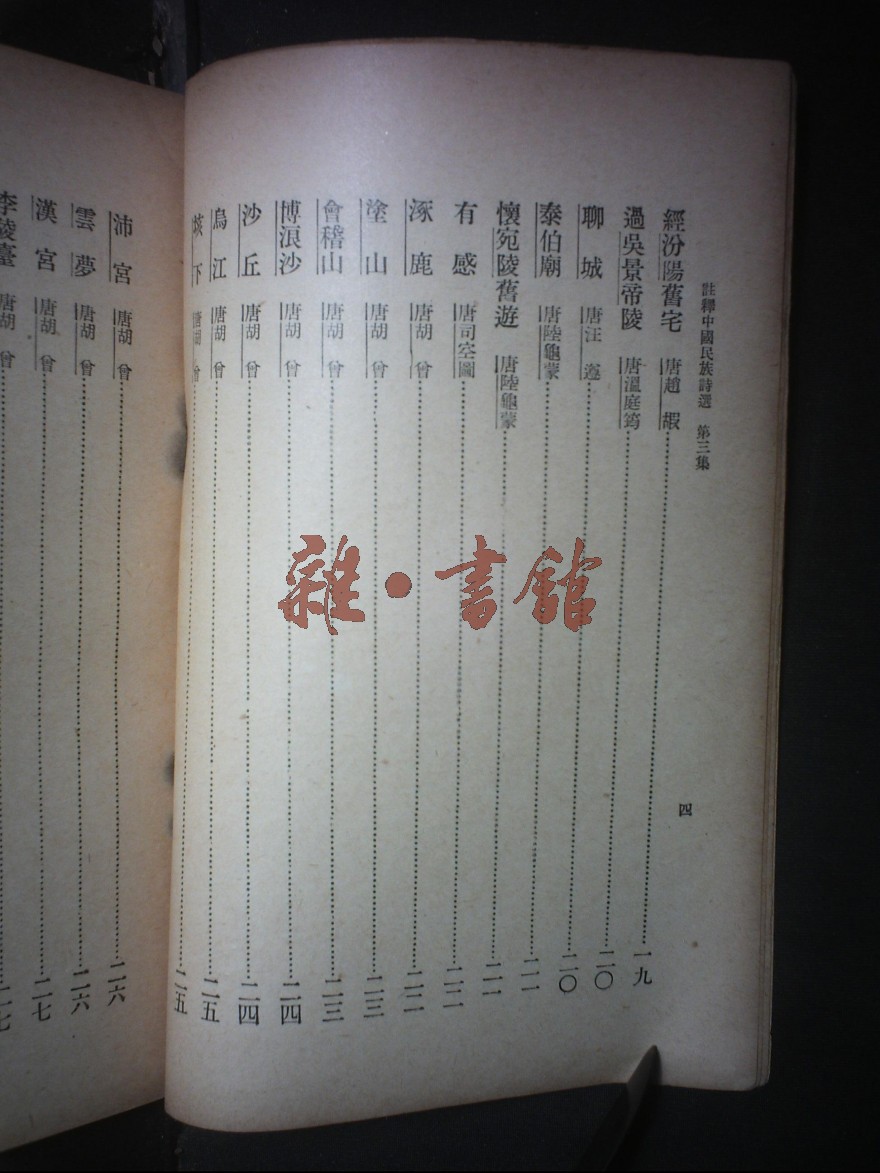 註釋中國民族詩選 第三集
四
經汾陽舊宅 唐趙 嘏 一九
過吳景帝陵 唐溫庭筠 二〇
聊城 唐汪 遵 二〇
泰伯廟 唐陸龜蒙 二一
懷宛陵舊遊 唐陸龜蒙 二一
有感 唐司空圖 二二
涿鹿 唐胡 曾 二二
塗山 唐胡 曾 二三
會稽山 唐胡 曾 二三
博浪沙 唐胡 曾 二四
沙丘 唐胡 曾 二四
烏江 唐胡 曾 二五
垓下 唐胡 曾 二五
沛宮 唐胡 曾 二六
雲夢 唐胡 曾 二六
漢宮 唐胡 曾 二七
李陵臺 唐胡 曾 二七
雜·書館